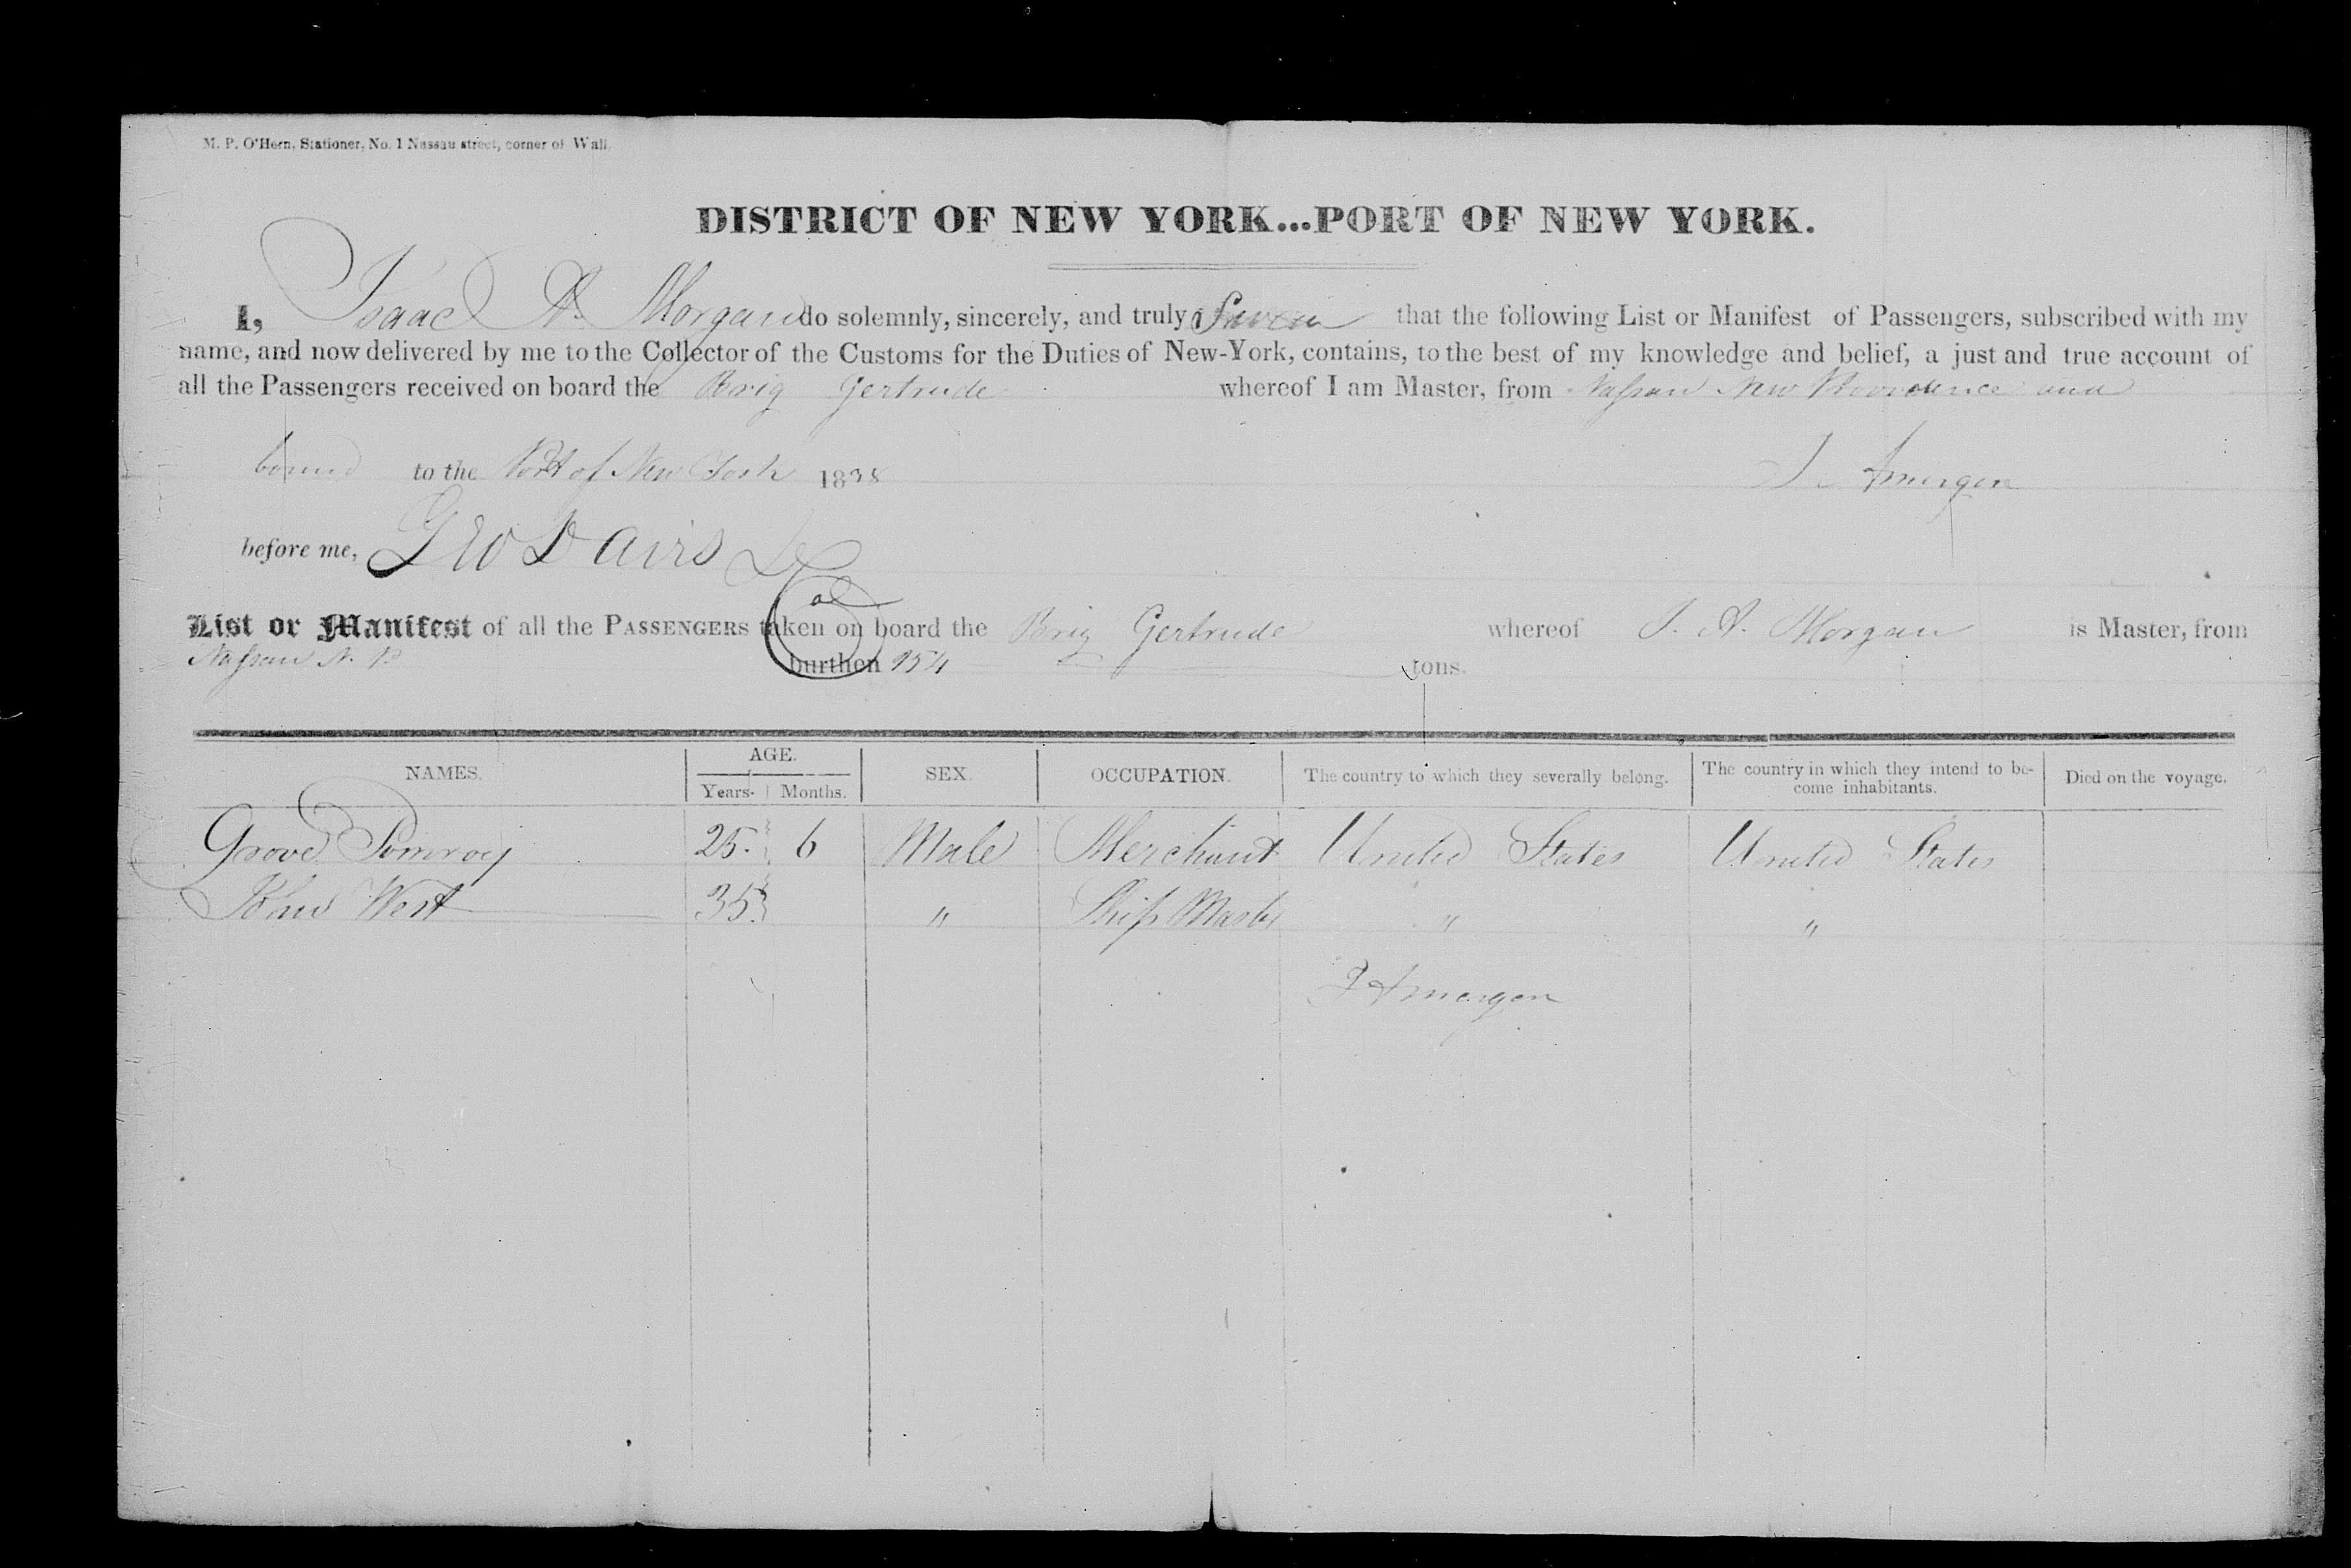 M. P. O'Hern, Stationer, No. 1 Nassau street, corner of Wall.
DISTRICT OF NEW YORK...PORT OF NEW YORK.
I, Isaac A. Morgan do solemnly, sincerely, and truly Swear that the following List or Manifest of Passengers, subscribed with my
name, and now delivered by me to the Collector of the Customs for the Duties of New-York, contains, to the best of my knowledge and belief, a just and true account of
all the Passengers received on board the Brig Gertrude whereof I am Master, from Nassau New Providence and
bound to the Port of New York 1838 I A morgan
before me, Geo Davis
List or Manifest of all the PASSENGERS taken on board the Brig Gertrude whereof I. A. Morgan is Master, from
Nassau N. P. burthen 154 tons.
NAMES. AGE. SEX. OCCUPATION. The country to which they severally belong. The country in which they intend to be-
come inhabitants. Died on the voyage.
Years. Months.
Grove Pomroy 25. 6 Male Merchant United States United States
West 35 " Ship Master " "
I A morgan